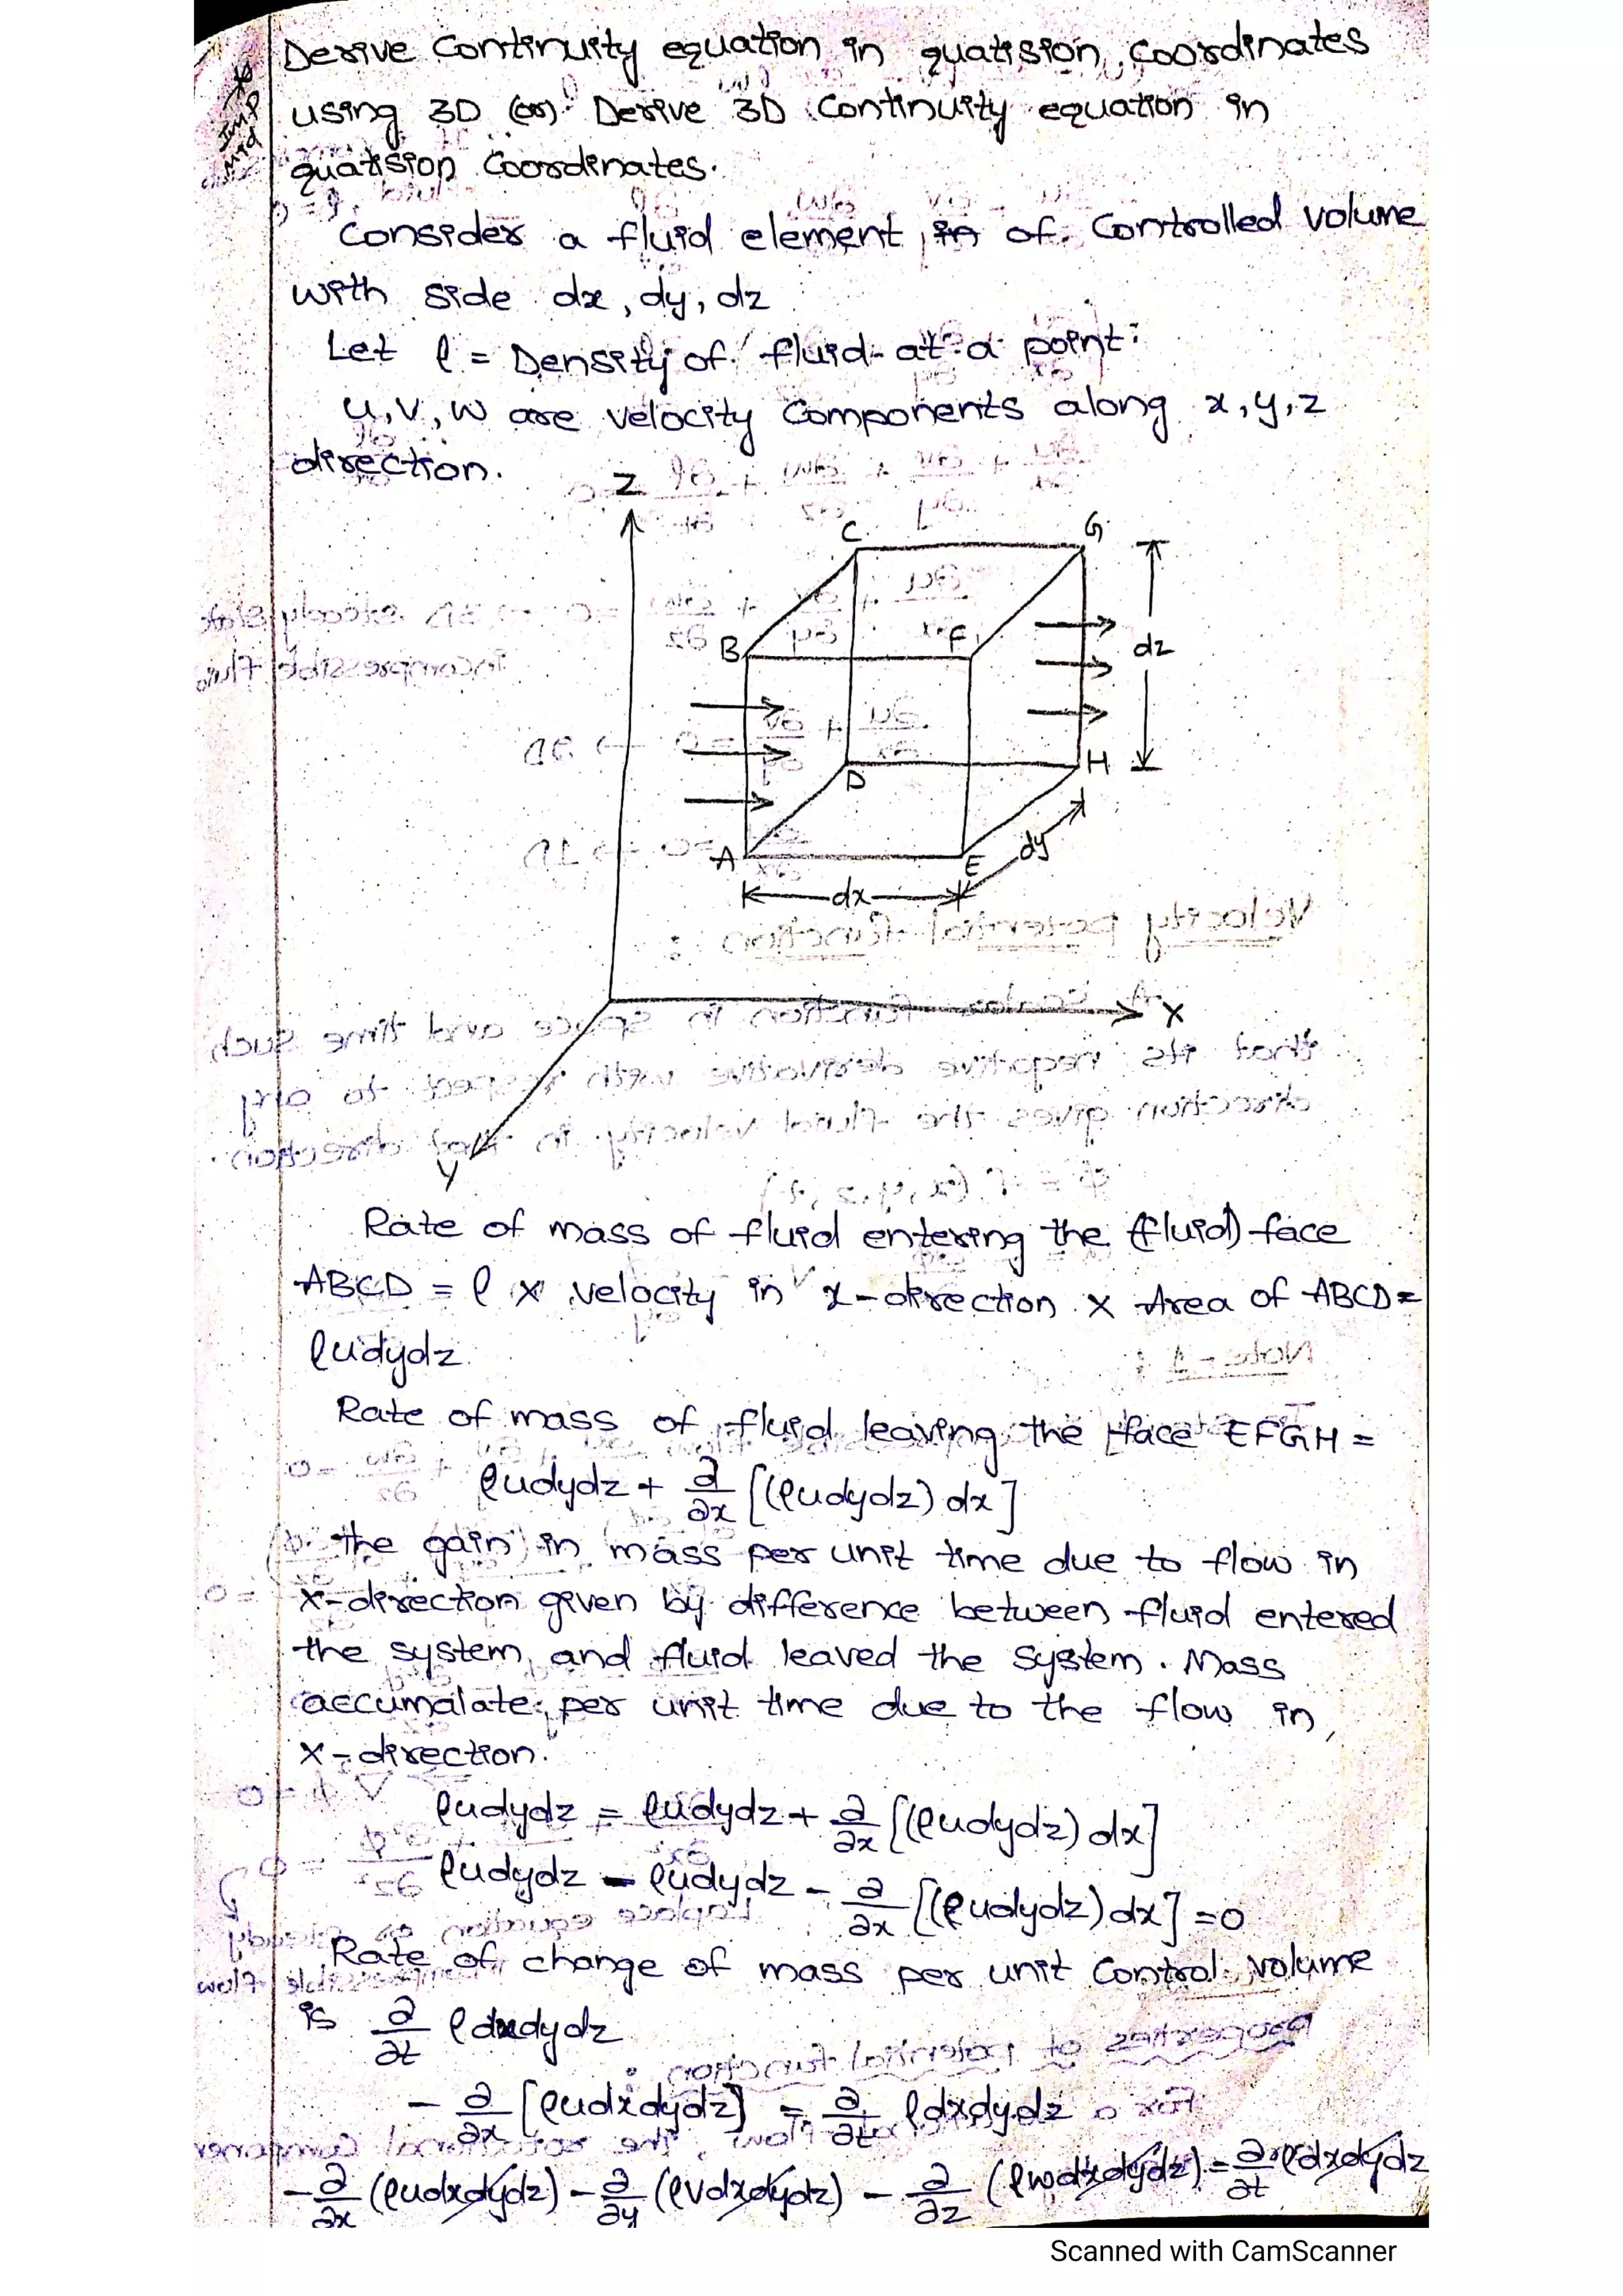 Derive Continuity equation in quatision coordinates
using 3D (or) Derive 3D Continuity equation in
quatision Coordinates.
Imp
Mid
Consider a fluid element in of Controlled volume
with side dx, dy, dz
Let ρ = Density of fluid at a point.
u, v, w are velocity Components along x, y, z
direction.
Z
C G
B F
dz
D H
A E
dy
dx
X
Y
Rate of mass of fluid entering the (fluid) face
ABCD = ρ × velocity in x-direction × Area of ABCD =
ρudydz
Rate of mass of fluid leaving the face EFGH =
ρudydz + ∂/∂x [(ρudydz) dx]
the gain in mass per unit time due to flow in
x-direction given by difference between fluid entered
the system and fluid leaved the system. Mass
accumalate per unit time due to the flow in
x-direction.
ρudydz = ρudydz + ∂/∂x [(ρudydz) dx]
ρudydz - ρudydz - ∂/∂x [(ρudydz) dx] = 0
Rate of change of mass per unit Control volume
is ∂/∂t ρdxdydz
- ∂/∂x [ρudxdydz] = ∂/∂t ρdxdydz
- ∂/∂x (ρudxdydz) - ∂/∂y (ρvdxdydz) - ∂/∂z (ρwdxdydz) = ∂/∂t ρdxdydz
Scanned with CamScanner